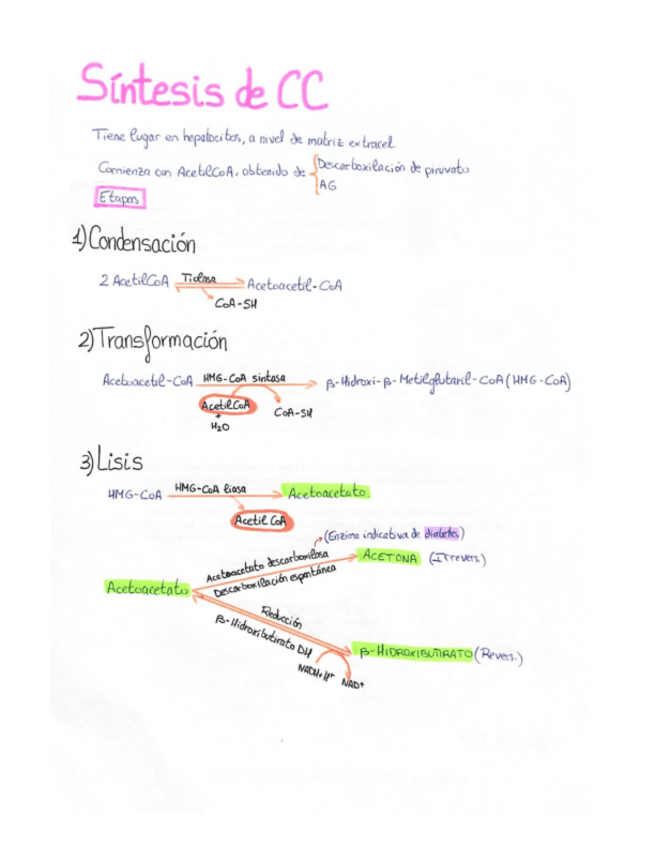 Síntesis de CC
Tiene lugar en hepatocitos, a nivel de matriz extracel.
Comienza con AcetilCoA, obtenido de { Descarboxilación de piruvato
AG
Etapas
1) Condensación
2 AcetilCoA Tiolasa Acetoacetil-CoA
CoA-SH
2) Transformación
Acetoacetil-CoA HMG-CoA sintasa β-Hidroxi-β-Metilglutaril-CoA (HMG-CoA)
AcetilCoA
+
H2O
CoA-SH
3) Lisis
HMG-CoA HMG-CoA liasa Acetoacetato.
Acetil CoA
(Enzima indicativa de diabetes)
Acetoacetato descarboxilasa
Descarboxilación espontánea
ACETONA (Irrevers.)
Acetoacetato
Reducción
β-Hidroxibutirato DH
β-HIDROXIBUTIRATO (Revers.)
NADH+H+ NAD+